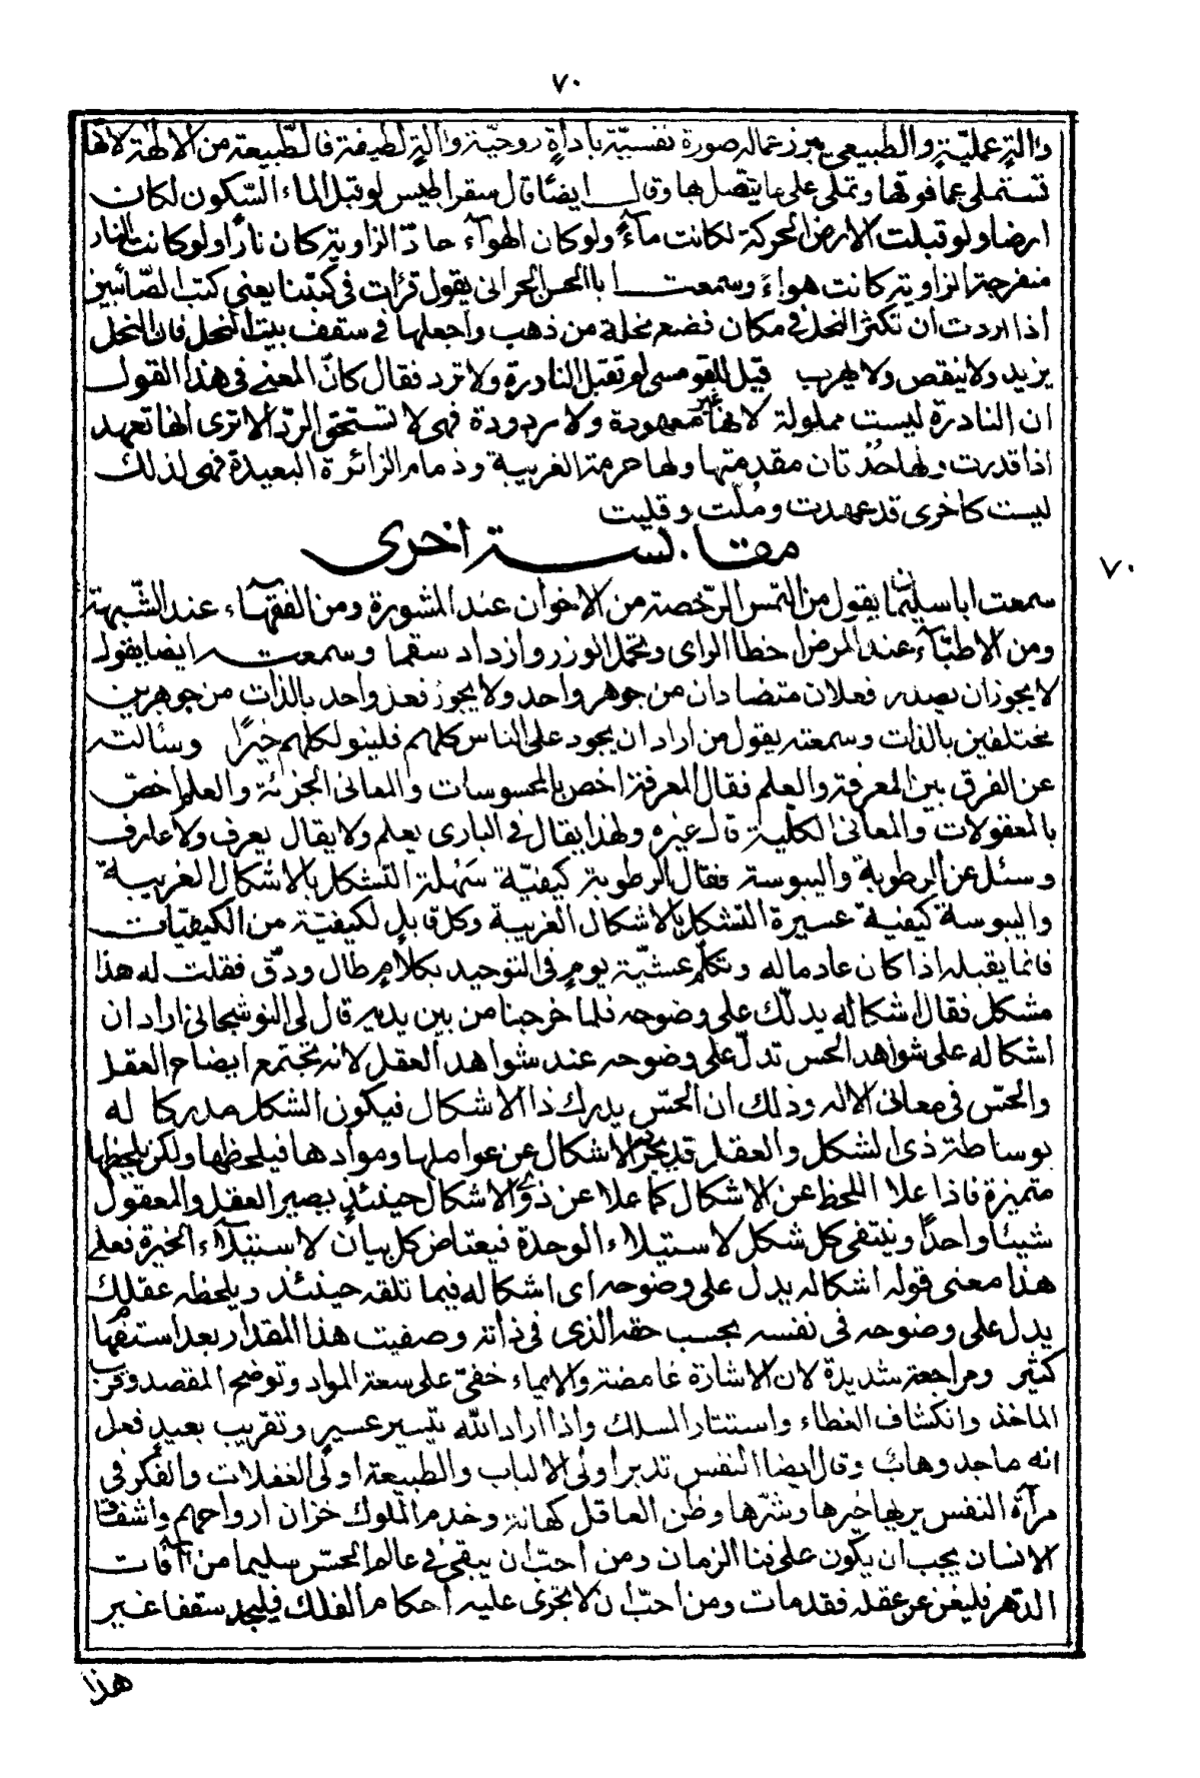 ٧٠
والةٍ عمليّةٍ والطبيعى يبرز عماله صورة نفسيّة باداةٍ روحيّة والةٍ لطيفة فالطّبيعة من الالهة لانّها
تستملى عما فوقها وتملى على ما يتّصل بها وقال ايضًا قال سقراطيس لو قبل الماء السّكون لكان
ارضا ولو قبلت الارض الحركة لكانت مآءً ولو كان الهوآء حادّ الزاوية كان نارًا ولو كانت النار
منفرجة الزاوية كانت هواءً وسمعت ابا الحسن الحرانى يقول قرات فى كتبنا يعنى كتب الصّائبين
اذا اردت ان تكثر النحل فى مكان فضع نحلة من ذهب واجعلها فى سقف بيت النحل فان النحل
يزيد ولا ينقص ولا يهرب قيل للقومسى لم تقبل النادرة ولا ترد فقال كانّ المعنى فى هذا القول
ان النادرة ليست مملولة لانها غير معهودة ولا مردودة فهى لا تستحق الردّ الا ترى انها تعهد
اذا قدرت ولها حدثان مقدمتها ولها حرمة الغريبة وذمام الزائرة البعيدة فهى لذلك
ليست كاخرى قد عهدت وملّت وقليت
مقابسة اخرى
٧٠
سمعت ابا سليمان يقول من التمس الرّخصة من الاخوان عند المشورة ومن الفقهآء عند الشّبهة
ومن الاطبّآء عند المرض اخطا الراى وتحمّل الوزر وازداد سقما وسمعته ايضا يقول
لا يجوز ان يصدر فعلان متضادان من جوهر واحد ولا يجوز فعل واحد بالذات من جوهرين
مختلفين بالذات وسمعته يقول من اراد ان يجود على الناس كلهم فلينو لكلهم خيرًا وسألته
عن الفرق بين المعرفة والعلم فقال المعرفة اخص بالمحسوسات والمعانى الجزئة والعلم اخصّ
بالمعقولات والمعانى الكلّية قال غيره ولهذا يقال فى البارى يعلم ولا يقال يعرف ولا عارف
وسئل عن الرطوبة واليبوسة فقال الرطوبة كيفيّة سَهْلة التشكل بالاشكال الغريبة
واليبوسة كيفية عسيرة التشكل بالاشكال الغريبة وكل قابلٍ لكيفيّة من الكيفيّات
فانما يقبله اذا كان عادما له وتكلّم عشيّة يومٍ فى التوحيد بكلامٍ طال ودقّ فقلت له هذا
مشكل فقال اشكاله يدلّك على وضوحه فلما خرجنا من بين يديه قال لى النوشجانى اراد ان
اشكاله على شواهد الحس تدلّ على وضوحه عند شواهد العقل لانه يجتمع ايضاح العقل
والحسّ فى معانى الاله وذلك ان الحسّ يدرك ذا الاشكال فيكون الشكل مدركا له
بوساطة ذى الشكل والعقل قد يجرّد الاشكال عن عواملها وموادها فيلحظها ولكن يلحظها
متميزة فاذا علا اللحظ عن الاشكال كما علا عن ذوى الاشكال حينئذٍ يصير العقل والمعقول
شيئا واحدًا وينتفى كل شكل لاستيلاء الوحدة فيعتاض كل بيان لاستيلآء الخيرة فعلى
هذا معنى قوله اشكاله يدل على وضوحه اى اشكاله فيما تلقه حينئذ ويلحظه عقلك
يدل على وضوحه فى نفسه بحسب حقه الذى فى ذاته وصفيت هذا المقدار بعد استفهام
كثير ومراجعة شديدة لان الاشارة غامضة والايماء خفىّ على سعة المواد وتوضح المقصد وقرب
الماخذ وانكشاف الغطاء واستنار المسلك واذا اراد الله تيسير عسيرٍ وتقريب بعيدٍ فعل
انه ماجد وهاب وقال ايضا النفس تدبر اولى الالباب والطبيعة اولى الغفلات والفكر فى
مرآة النفس يريها خيرها وشرّها وظن العاقل كهانة وخدم الملوك خزان ارواحهم واشفقا
الانسان يجب ان يكون على بنا الزمان ومن احبّ ان يبقى فى عالم الحسّ سليما من آفات
الدّهر فليغن عن عقله فقد مات ومن احبّ ان لا تجرى عليه احكام الفلك فليجد سقفا غير
هذا